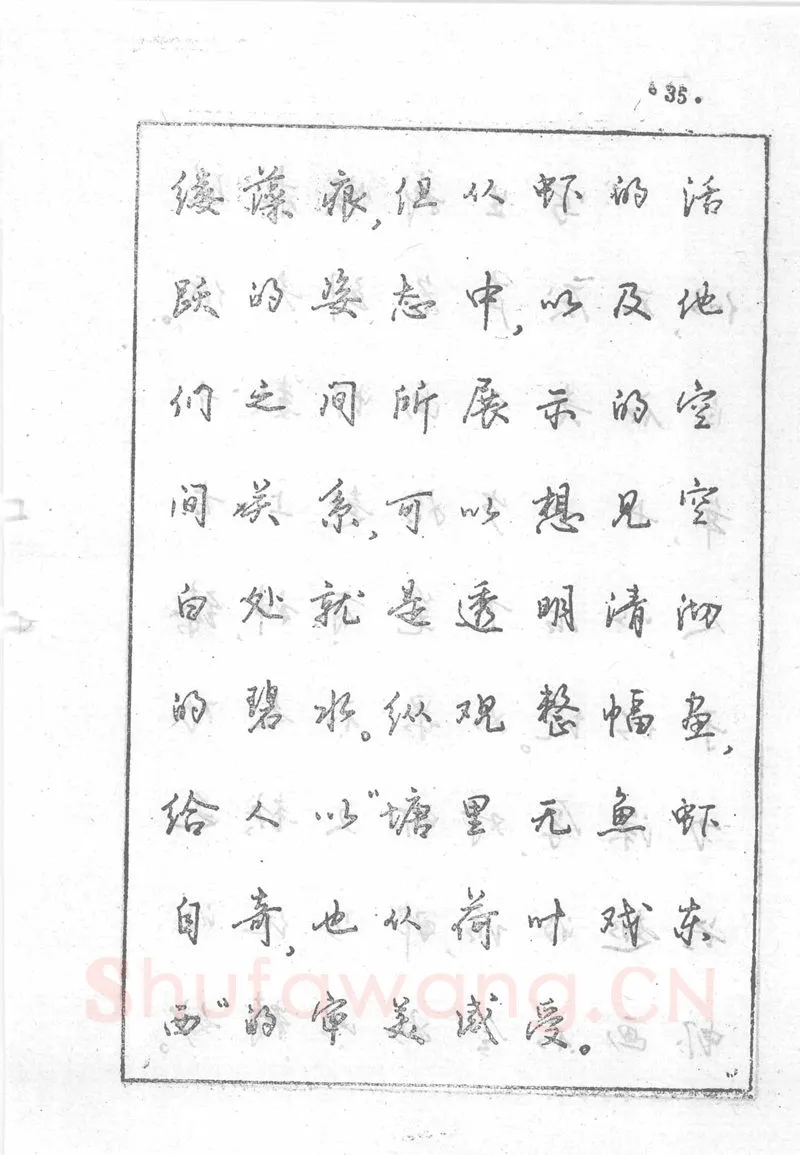 ·35·
缕藻痕,但从虾的活
跃的姿态中,以及他
们之间所展示的空
间关系,可以想见空
白处就是透明清沏
的碧水。纵观整幅画,
给人以“塘里无鱼虾
自奇,也从荷叶戏东
西”的审美感受。
Shufawang.CN